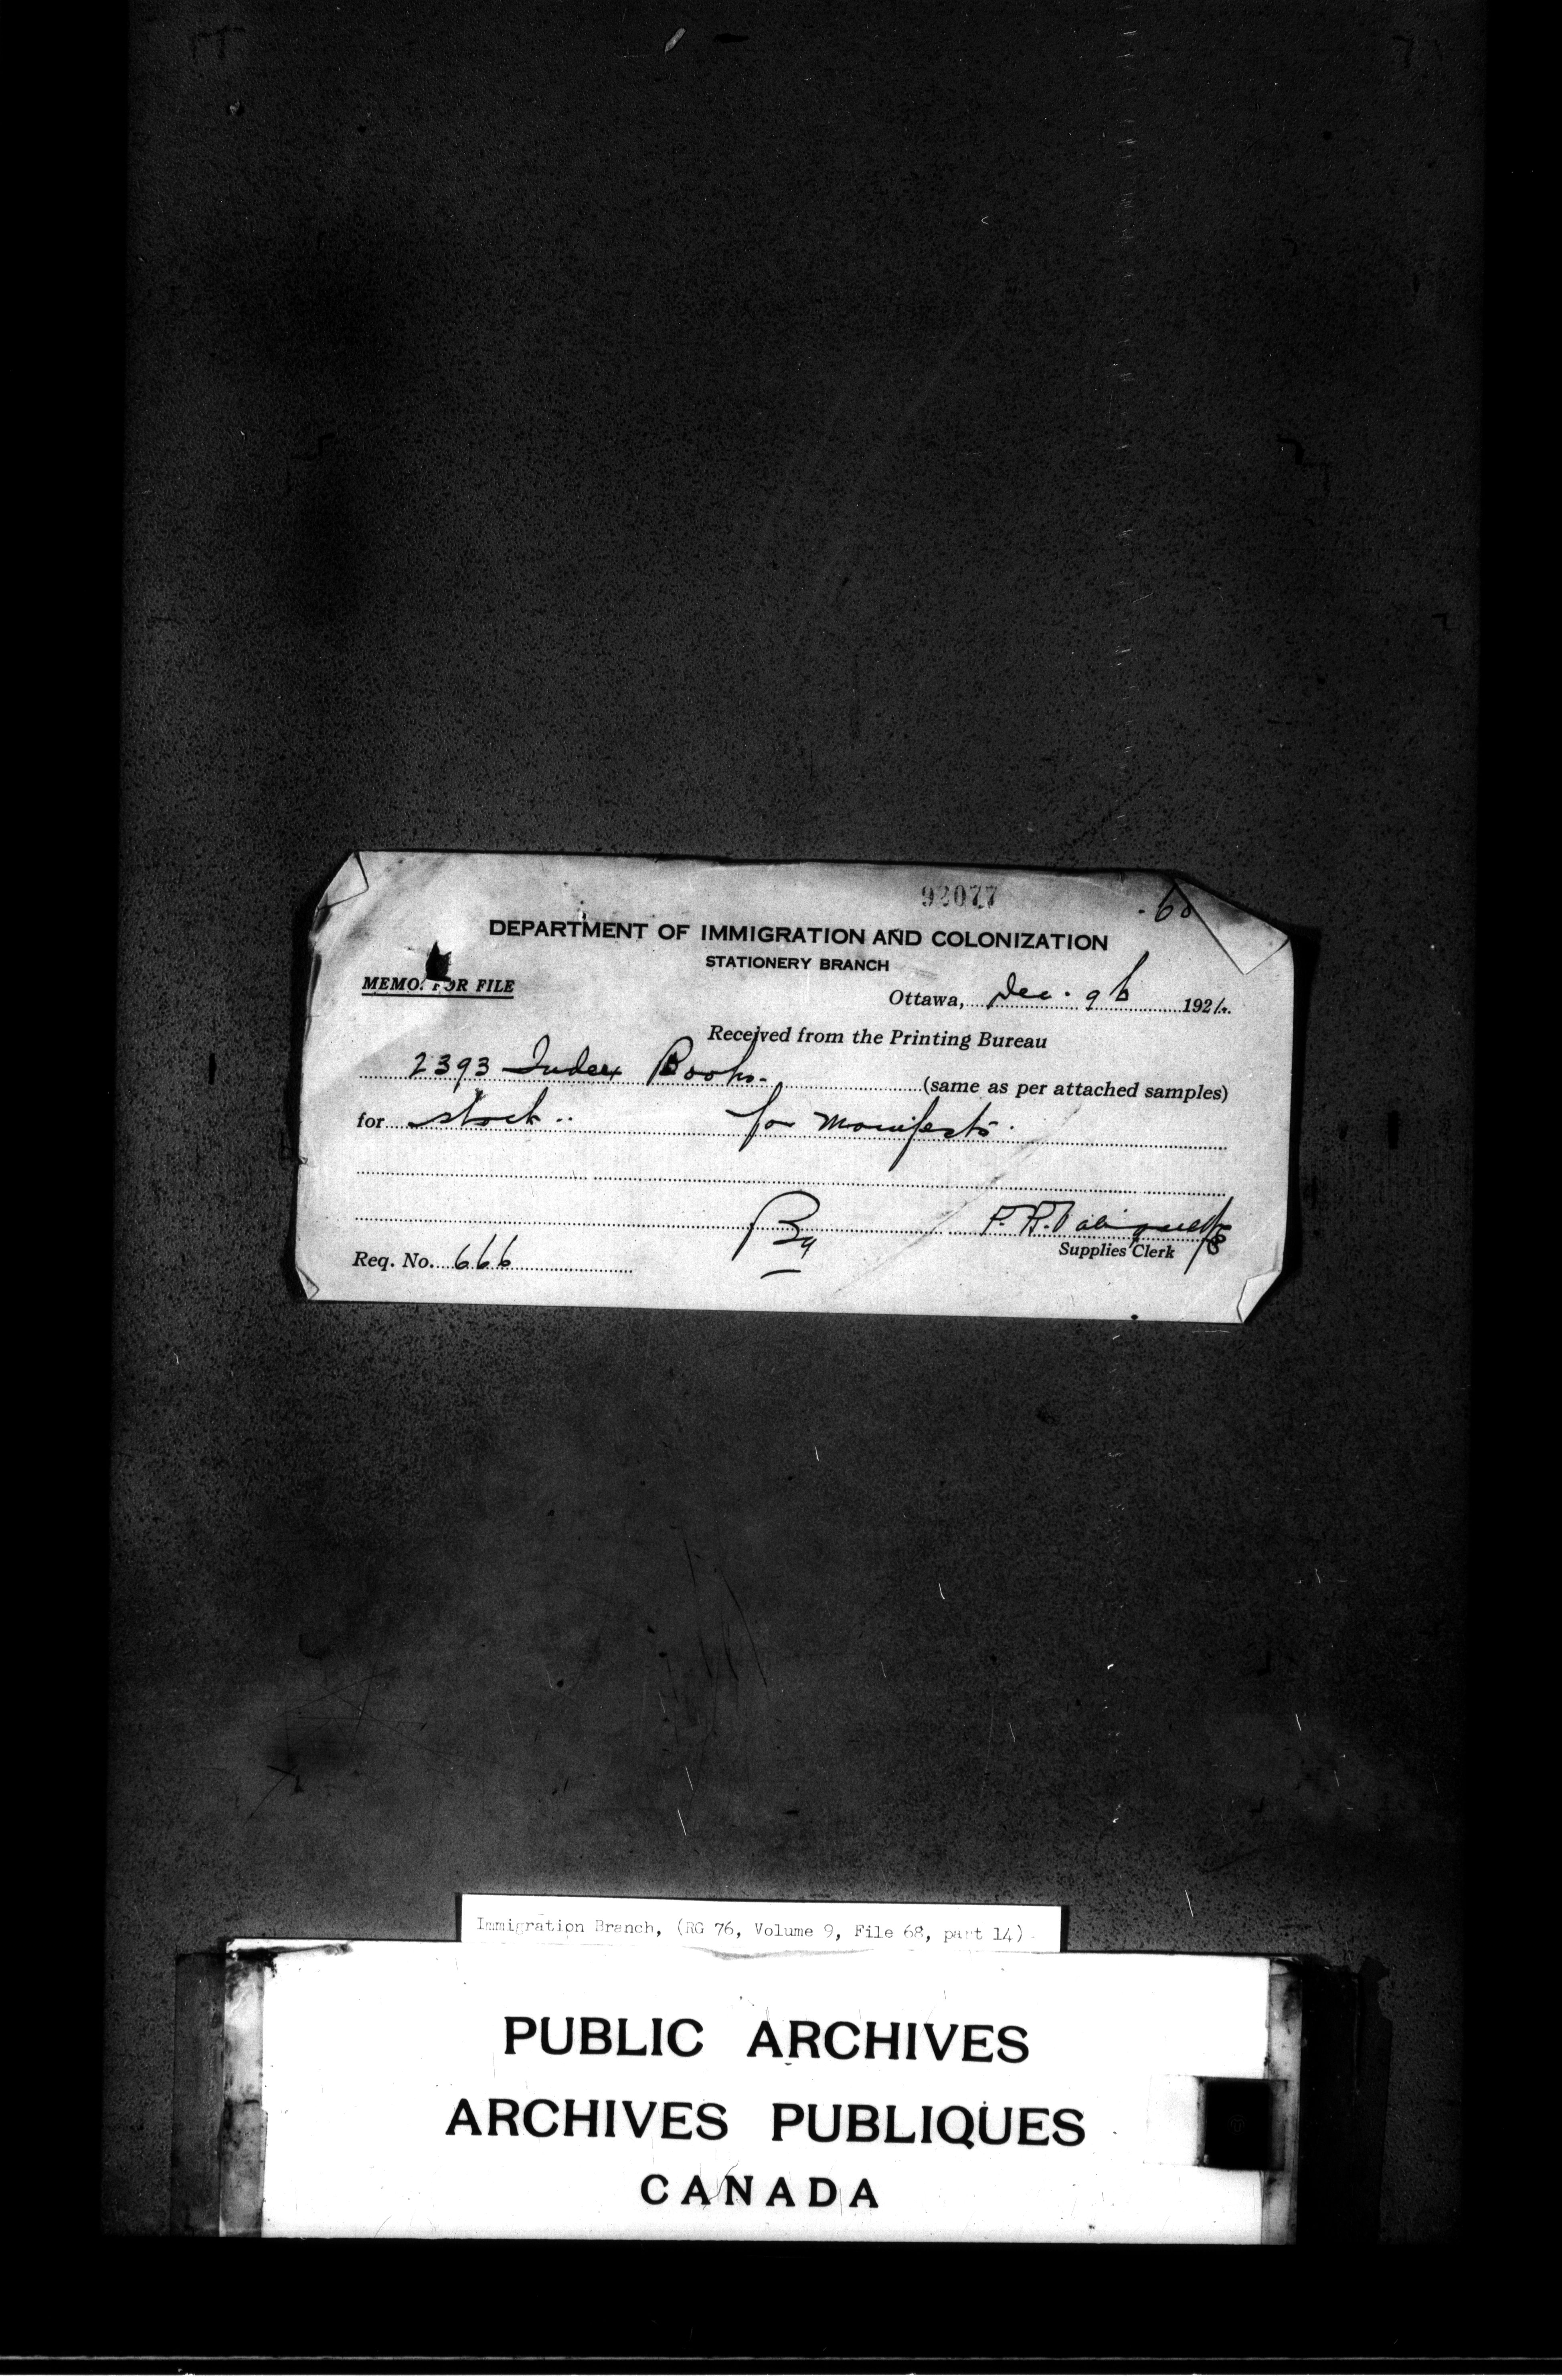 92077
DEPARTMENT OF IMMIGRATION AND COLONIZATION
STATIONERY BRANCH
MEMO. FOR FILE
Ottawa, Dec. 9th 1924.
Received from the Printing Bureau
2393 Index Books. (same as per attached samples)
for stock. for manifests.
Supplies Clerk
Req. No. 666
Immigration Branch, (RG 76, Volume 9, File 68, part 14)
PUBLIC ARCHIVES
ARCHIVES PUBLIQUES
CANADA